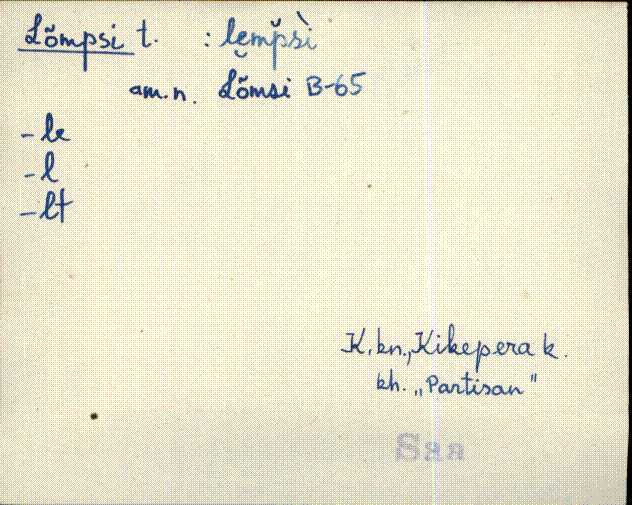 Lõmpsi t. : le̮mp̆sì
am.n. Lõmsi B-65
-le
-l
-lt
K. kn., Kikepera k.
kh. „Partisan"
Saa